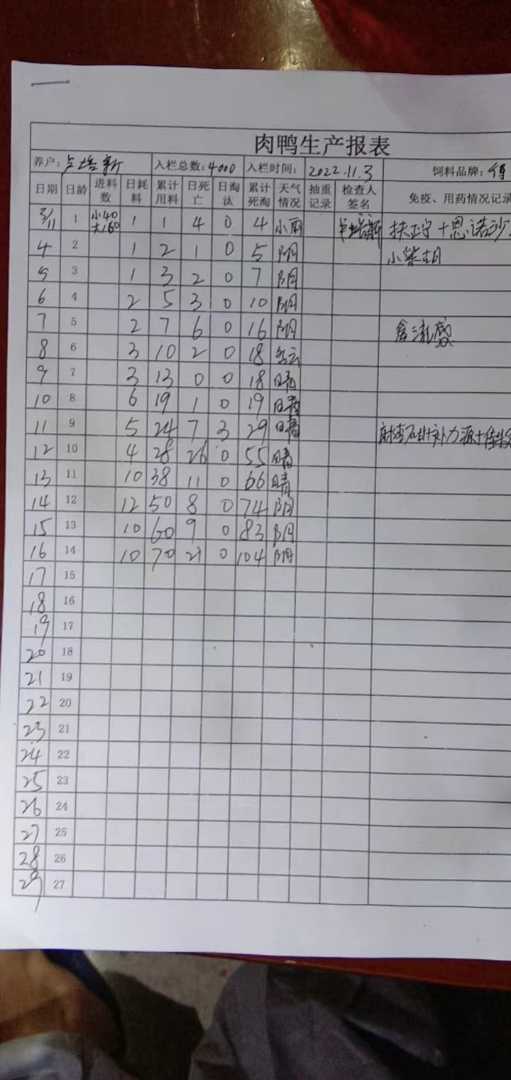 肉鸭生产报表
养户: 入栏总数:4000 入栏时间: 2022.11.3 饲料品牌:
日期 日龄 进料数 日耗料 累计用料 日死亡 日淘汰 累计死淘 天气情况 抽重记录 检查人签名 免疫、用药情况记录
3/11 1 小40 大160 1 1 4 0 4 小雨
4 2 1 2 1 0 5 阴 小柴胡
5 3 1 3 2 0 7 阴
6 4 2 5 3 0 10 阴
7 5 2 7 6 0 16 阴
8 6 3 10 2 0 18 多云
9 7 3 13 0 0 18 晴
10 8 6 19 1 0 19 晴
11 9 5 24 7 3 29 晴
12 10 4 28 26 0 55 晴
13 11 10 38 11 0 66 晴
14 12 12 50 8 0 74 阴
15 13 10 60 9 0 83 阴
16 14 10 70 21 0 104 阴
17 15
18 16
19 17
20 18
21 19
22 20
23 21
24 22
25 23
26 24
27 25
28 26
29 27